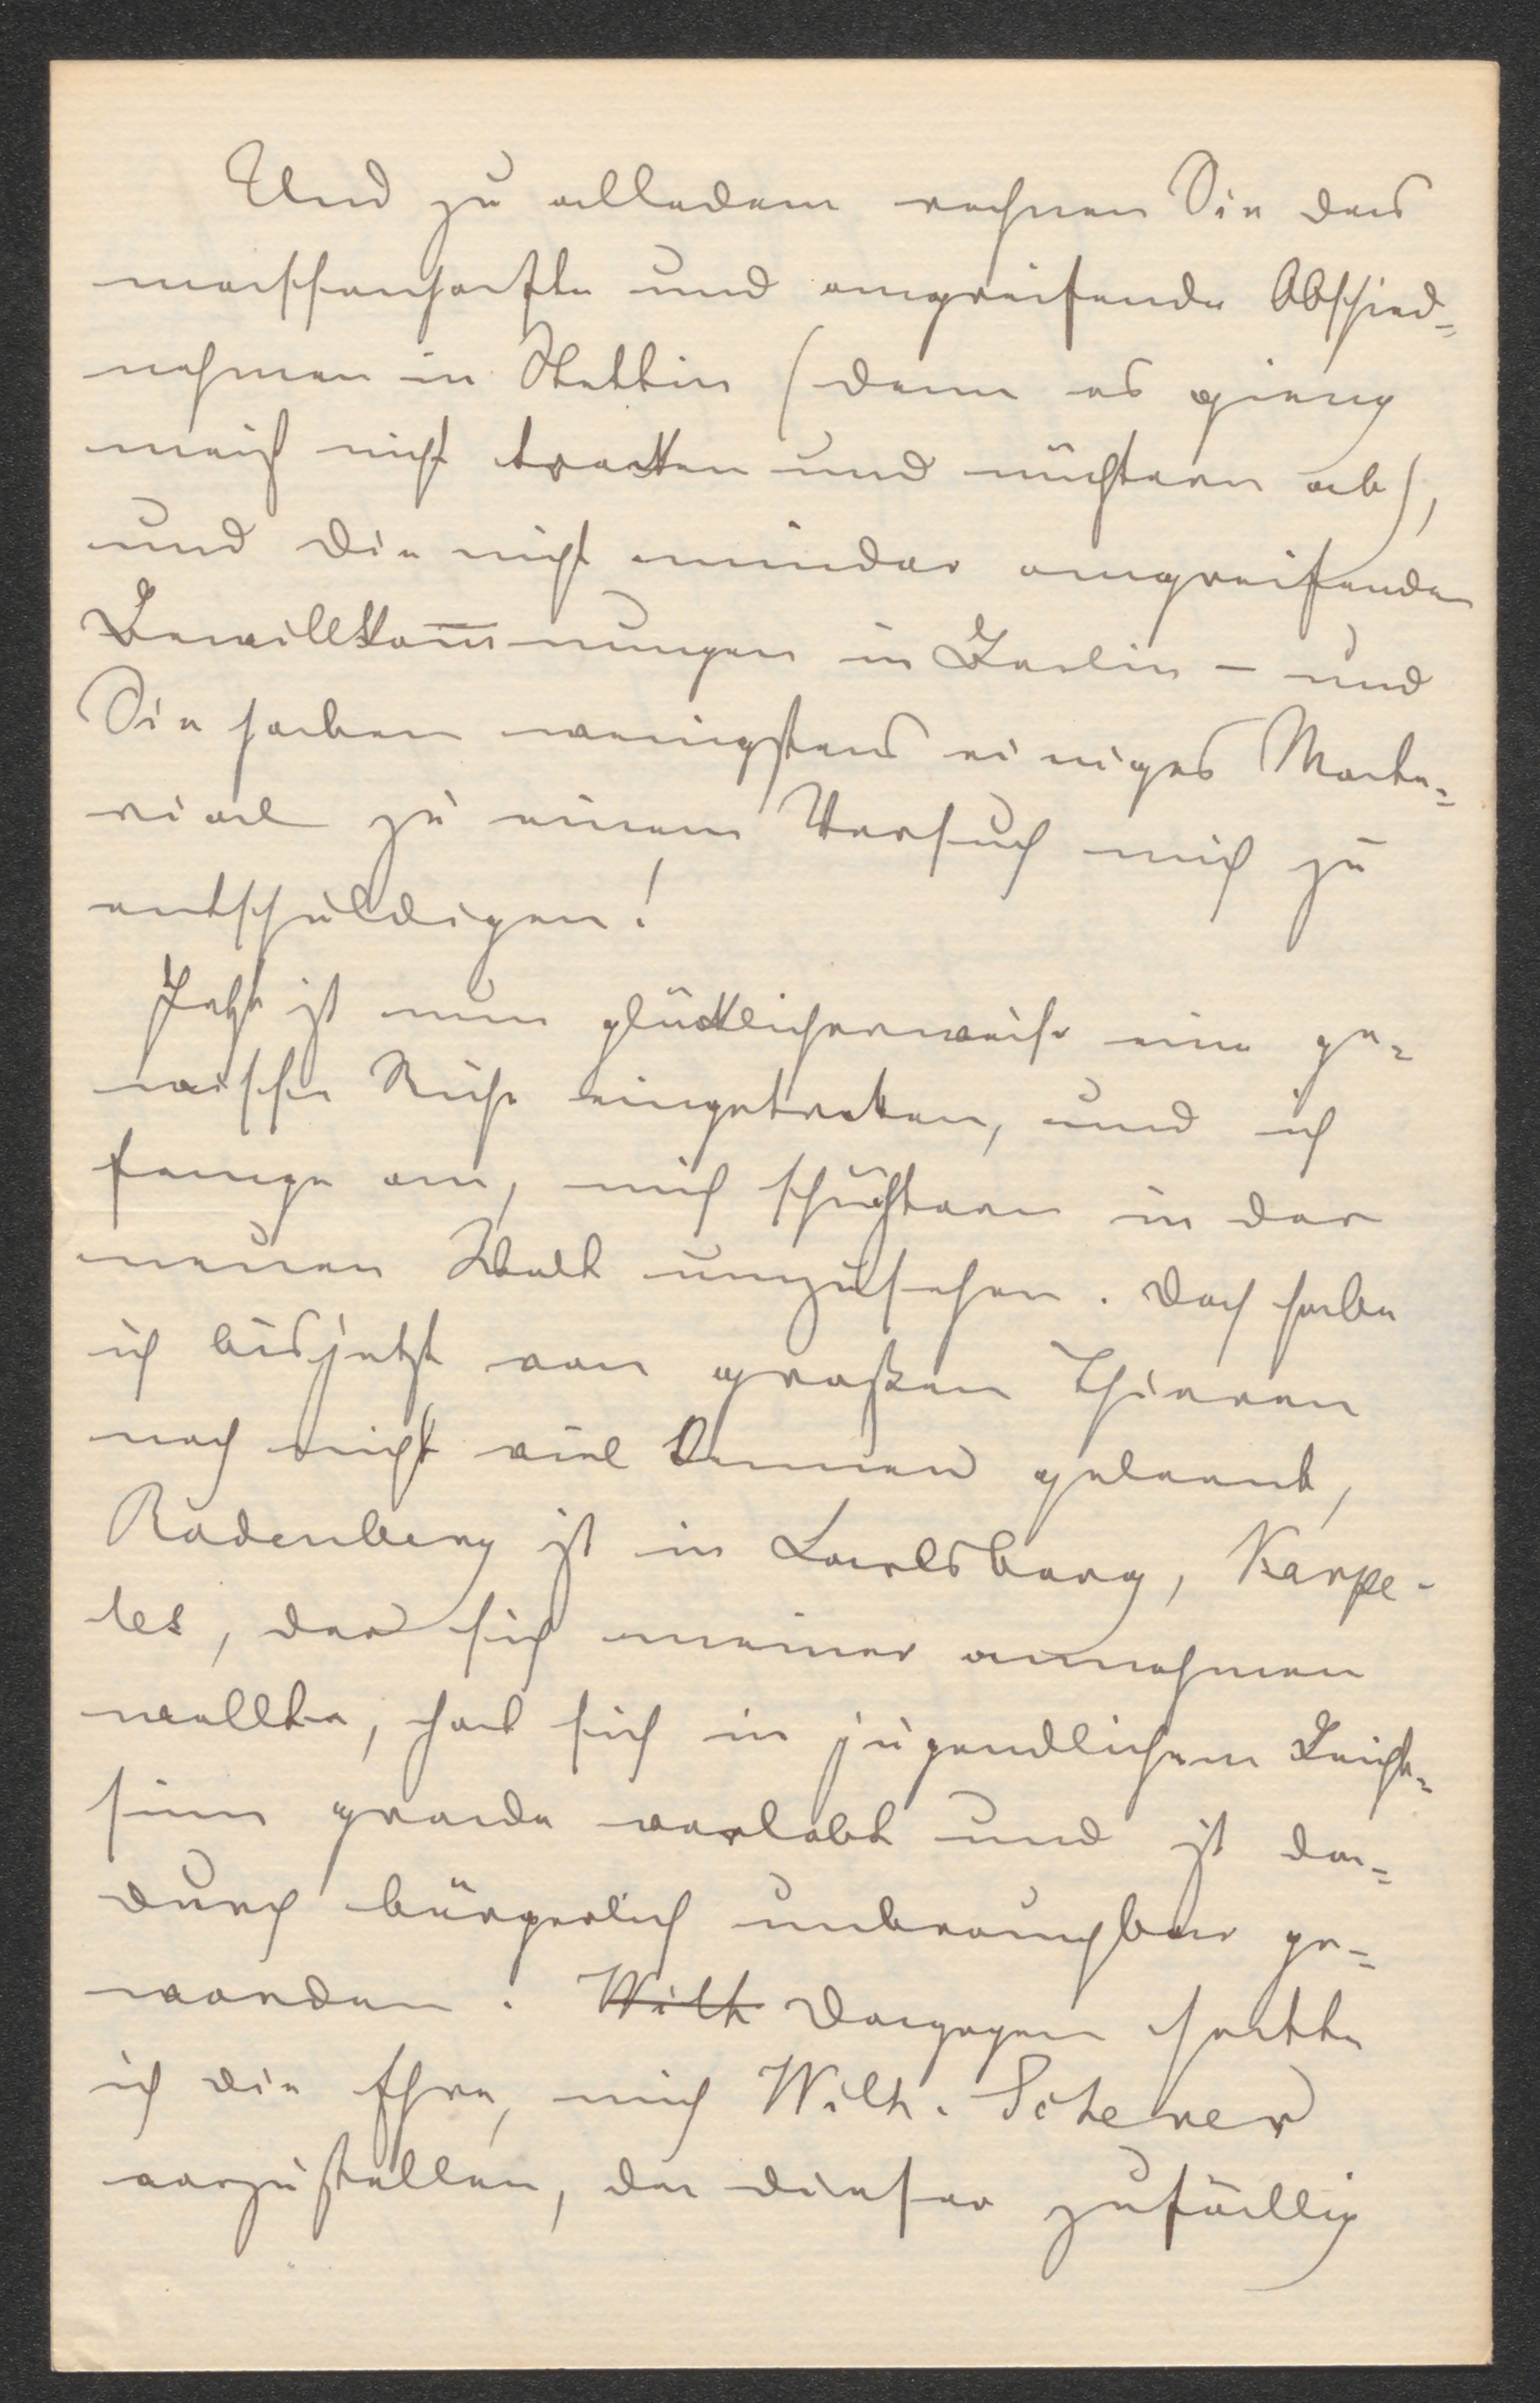 Und zu alledem rechnen Sie das
massenhafte und angreifende Abschied-
nehmen in Stettin (denn es gieng
meist nicht trocken und nüchtern ab),
und die nicht minder angreifenden
Bewillkom̅nungen in Berlin – und
Sie haben wenigstens einiges Mate-
rial zu einem Versuch mich zu
entschuldigen!
Jetzt ist nun glücklicherweise eine ge-
wisse Ruhe eingetreten, und ich
fange an, mich schüchtern in der
neuen Welt umzusehen. Doch habe
ich bisjetzt von großen Thieren
noch nicht viel kennen gelernt,
Rodenberg ist in Carlsberg, Karpe-
les, der sich meiner annehmen
wollte, hat sich in jugendlichem Leicht-
sinn grade verlobt und ist da-
durch bürgerlich unbrauchbar ge-
worden. Wilh Dagegen hatte
ich die Ehre, mich Wilh. Scherer
vorzustellen, da dieser zufällig